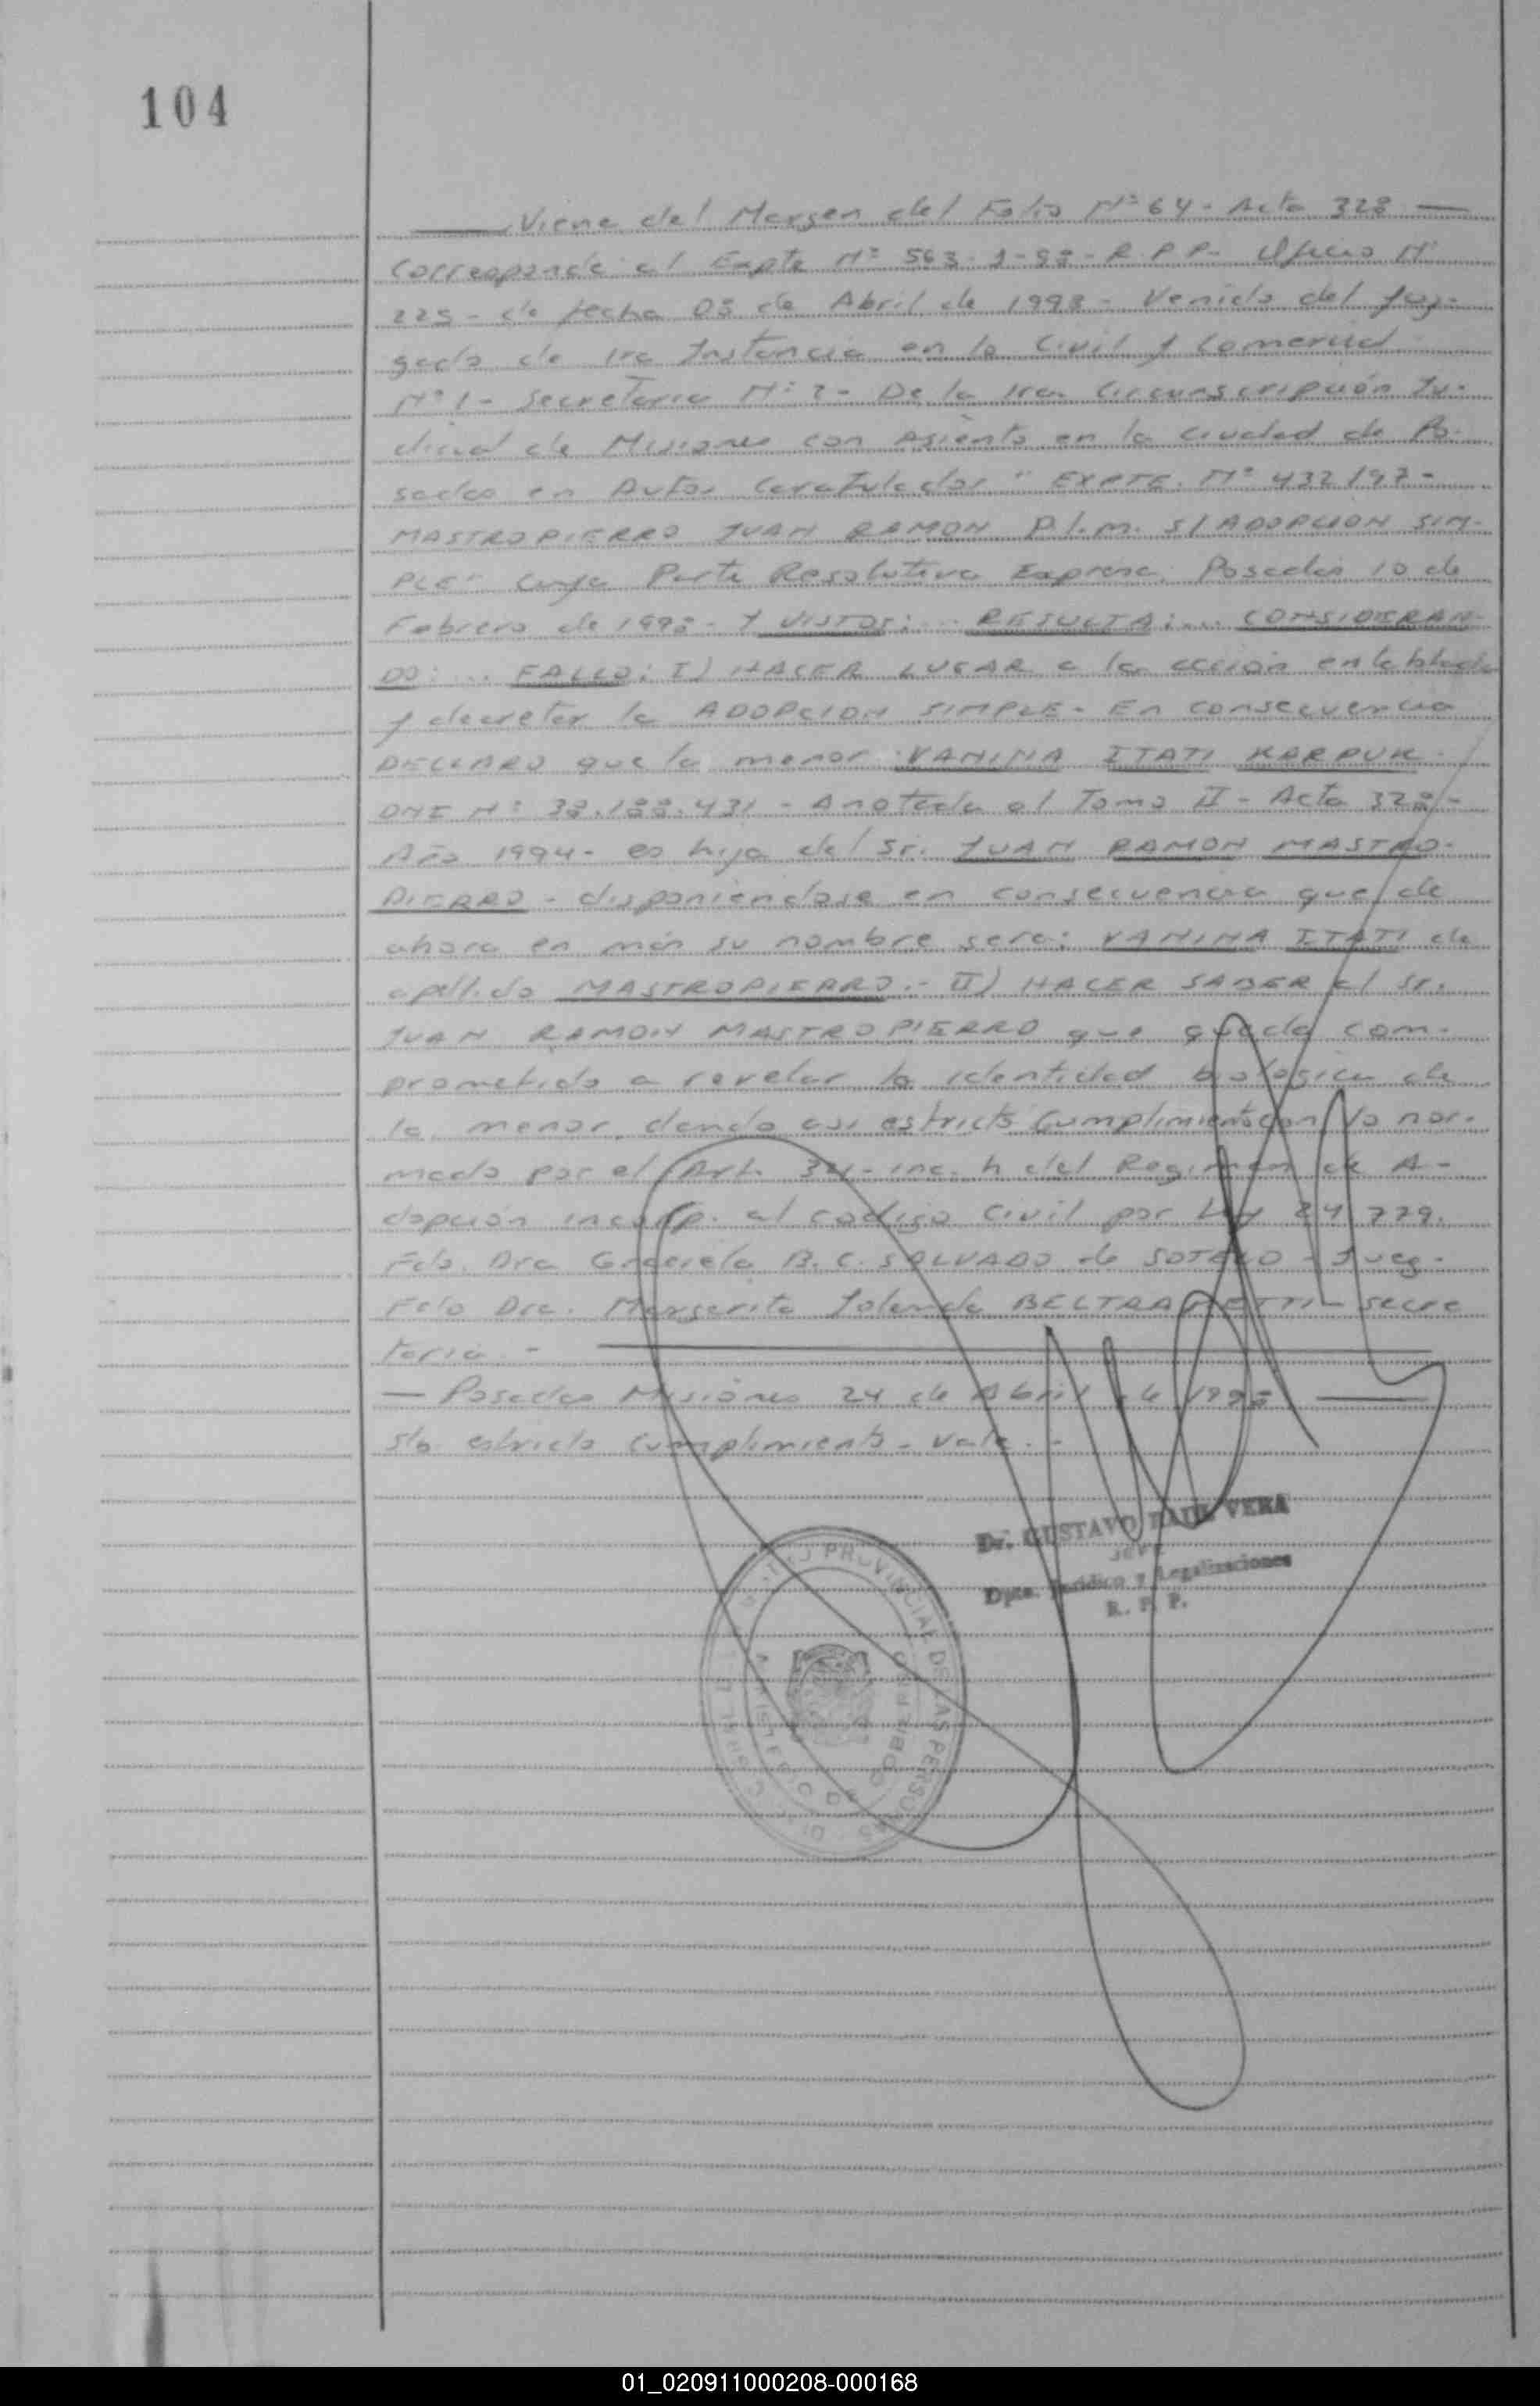 104
Viene del Margen del Folio Nº 64 - Acta 328
Corresponde al Expte Nº 563-J-98- R.P.P- Oficio Nº
225- de fecha 08 de Abril de 1998 - Venido del Juz-
gado de 1ra Instancia en lo Civil y Comercial
Nº 1 - Secretaria Nº 2 - De la 1ra. Circunscripción Ju-
dicial de Misiones con Asiento en la Ciudad de Po-
sadas en Autos Caratulados " EXPTE. Nº 432/97 -
MASTROPIERRO JUAN RAMON P.l.m. S/ ADOPCION SIM-
PLE" Cuya Parte Resolutiva Expresa: Posadas 10 de
Febrero de 1998 - Y VISTOS:... RESULTA:... CONSIDERAN-
DO:... FALLO: I) HACER LUGAR a la acción entablada
y decretar la ADOPCION SIMPLE - En consecuencia
DECLARO que la menor VANINA ITATI KARPUK
DNI Nº 38.188.431 - Anotada al Tomo II - Acta 328 -
Año 1994 - es hija del Sr. JUAN RAMON MASTRO-
PIERRO - disponiendose en consecuencia que de
ahora en más su nombre sera: VANINA ITATI de
apellido MASTROPIERRO.- II) HACER SABER al Sr.
JUAN RAMON MASTROPIERRO que queda com-
prometido a revelar la identidad biologica de
la menor, dando asi estricto Cumplimiento con lo nor-
mado por el Art. 34 - inc. h del Regimen de A-
dopción incorp. al codigo Civil por Ley 24 779.
Fdo. Dra Graciela B. C. SALVADO de SOTELO - Juez -
Fdo Dra. Margarita Yolanda BELTRAMETTI - Secre
taria. -
— Posadas Misiones 24 de Abril de 1998
S/b estricto Cumplimiento - Vale. -
Dr. GUSTAVO RAUL VERA
JEFE
Dpto. Jurídico y Legalizaciones
R. P. P.
PROVINCIAL DE LAS PERSONAS
MINISTERIO DE GOBIERNO
01_020911000208-000168